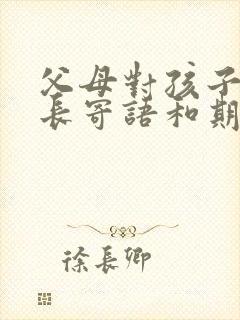 父母對孩子
長寄語和期
徐長卿